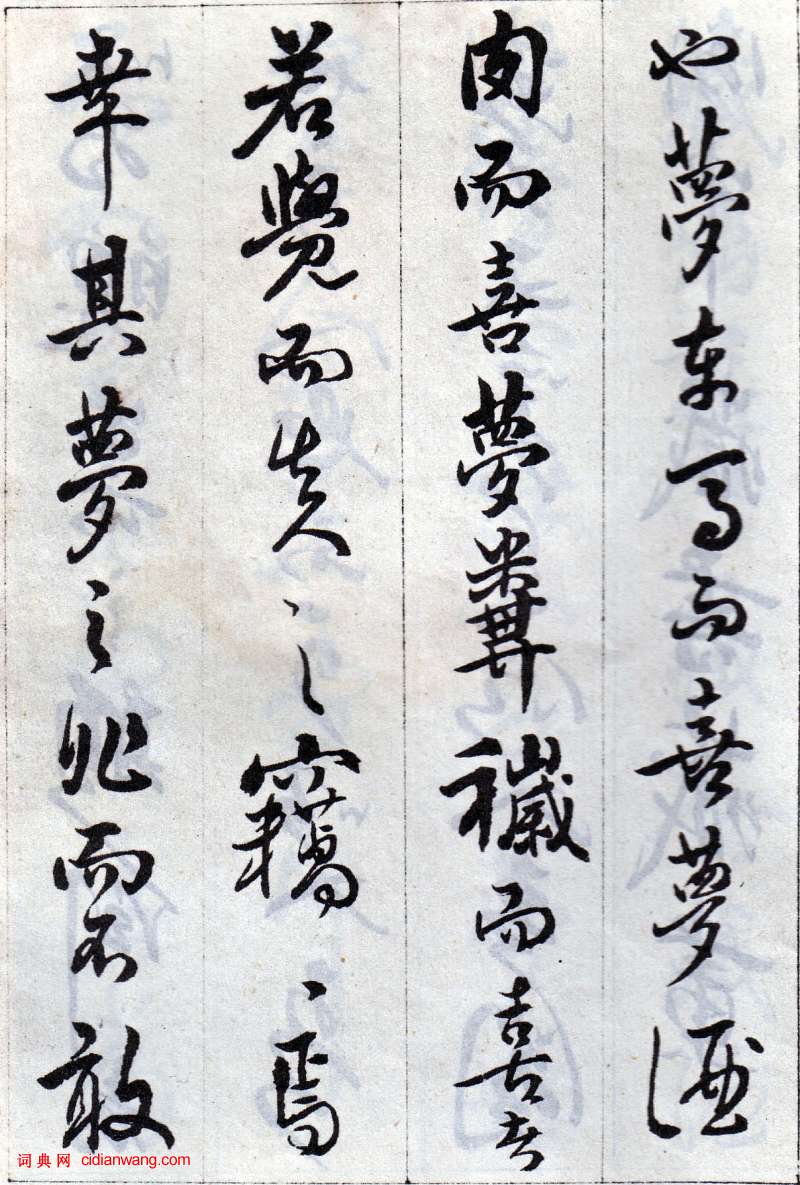 也夢車馬而喜夢酒
肉而喜夢糞穢而喜者
若覺而失之竊〻焉
幸其夢之非而不敢
词典网 cidianwang.com